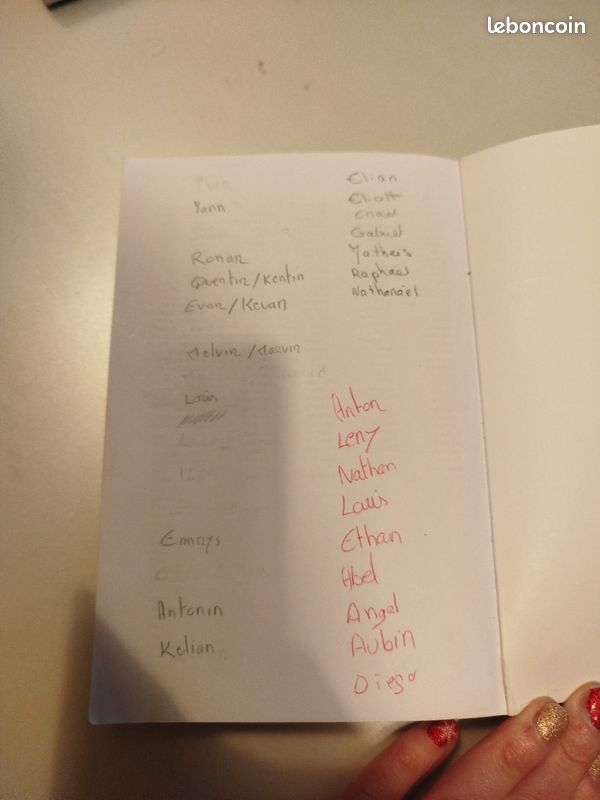 leboncoin
Yann
Ronan
Quentin/Kentin
Evan/Kevan
Melvin/Marvin
Loris
Emrys
Antonin
Kelian
Elian
Eliott
Enael
Gabriel
Matheis
Raphael
Nathanaël
Anton
Leny
Nathan
Louis
Ethan
Abel
Angel
Aubin
Diego